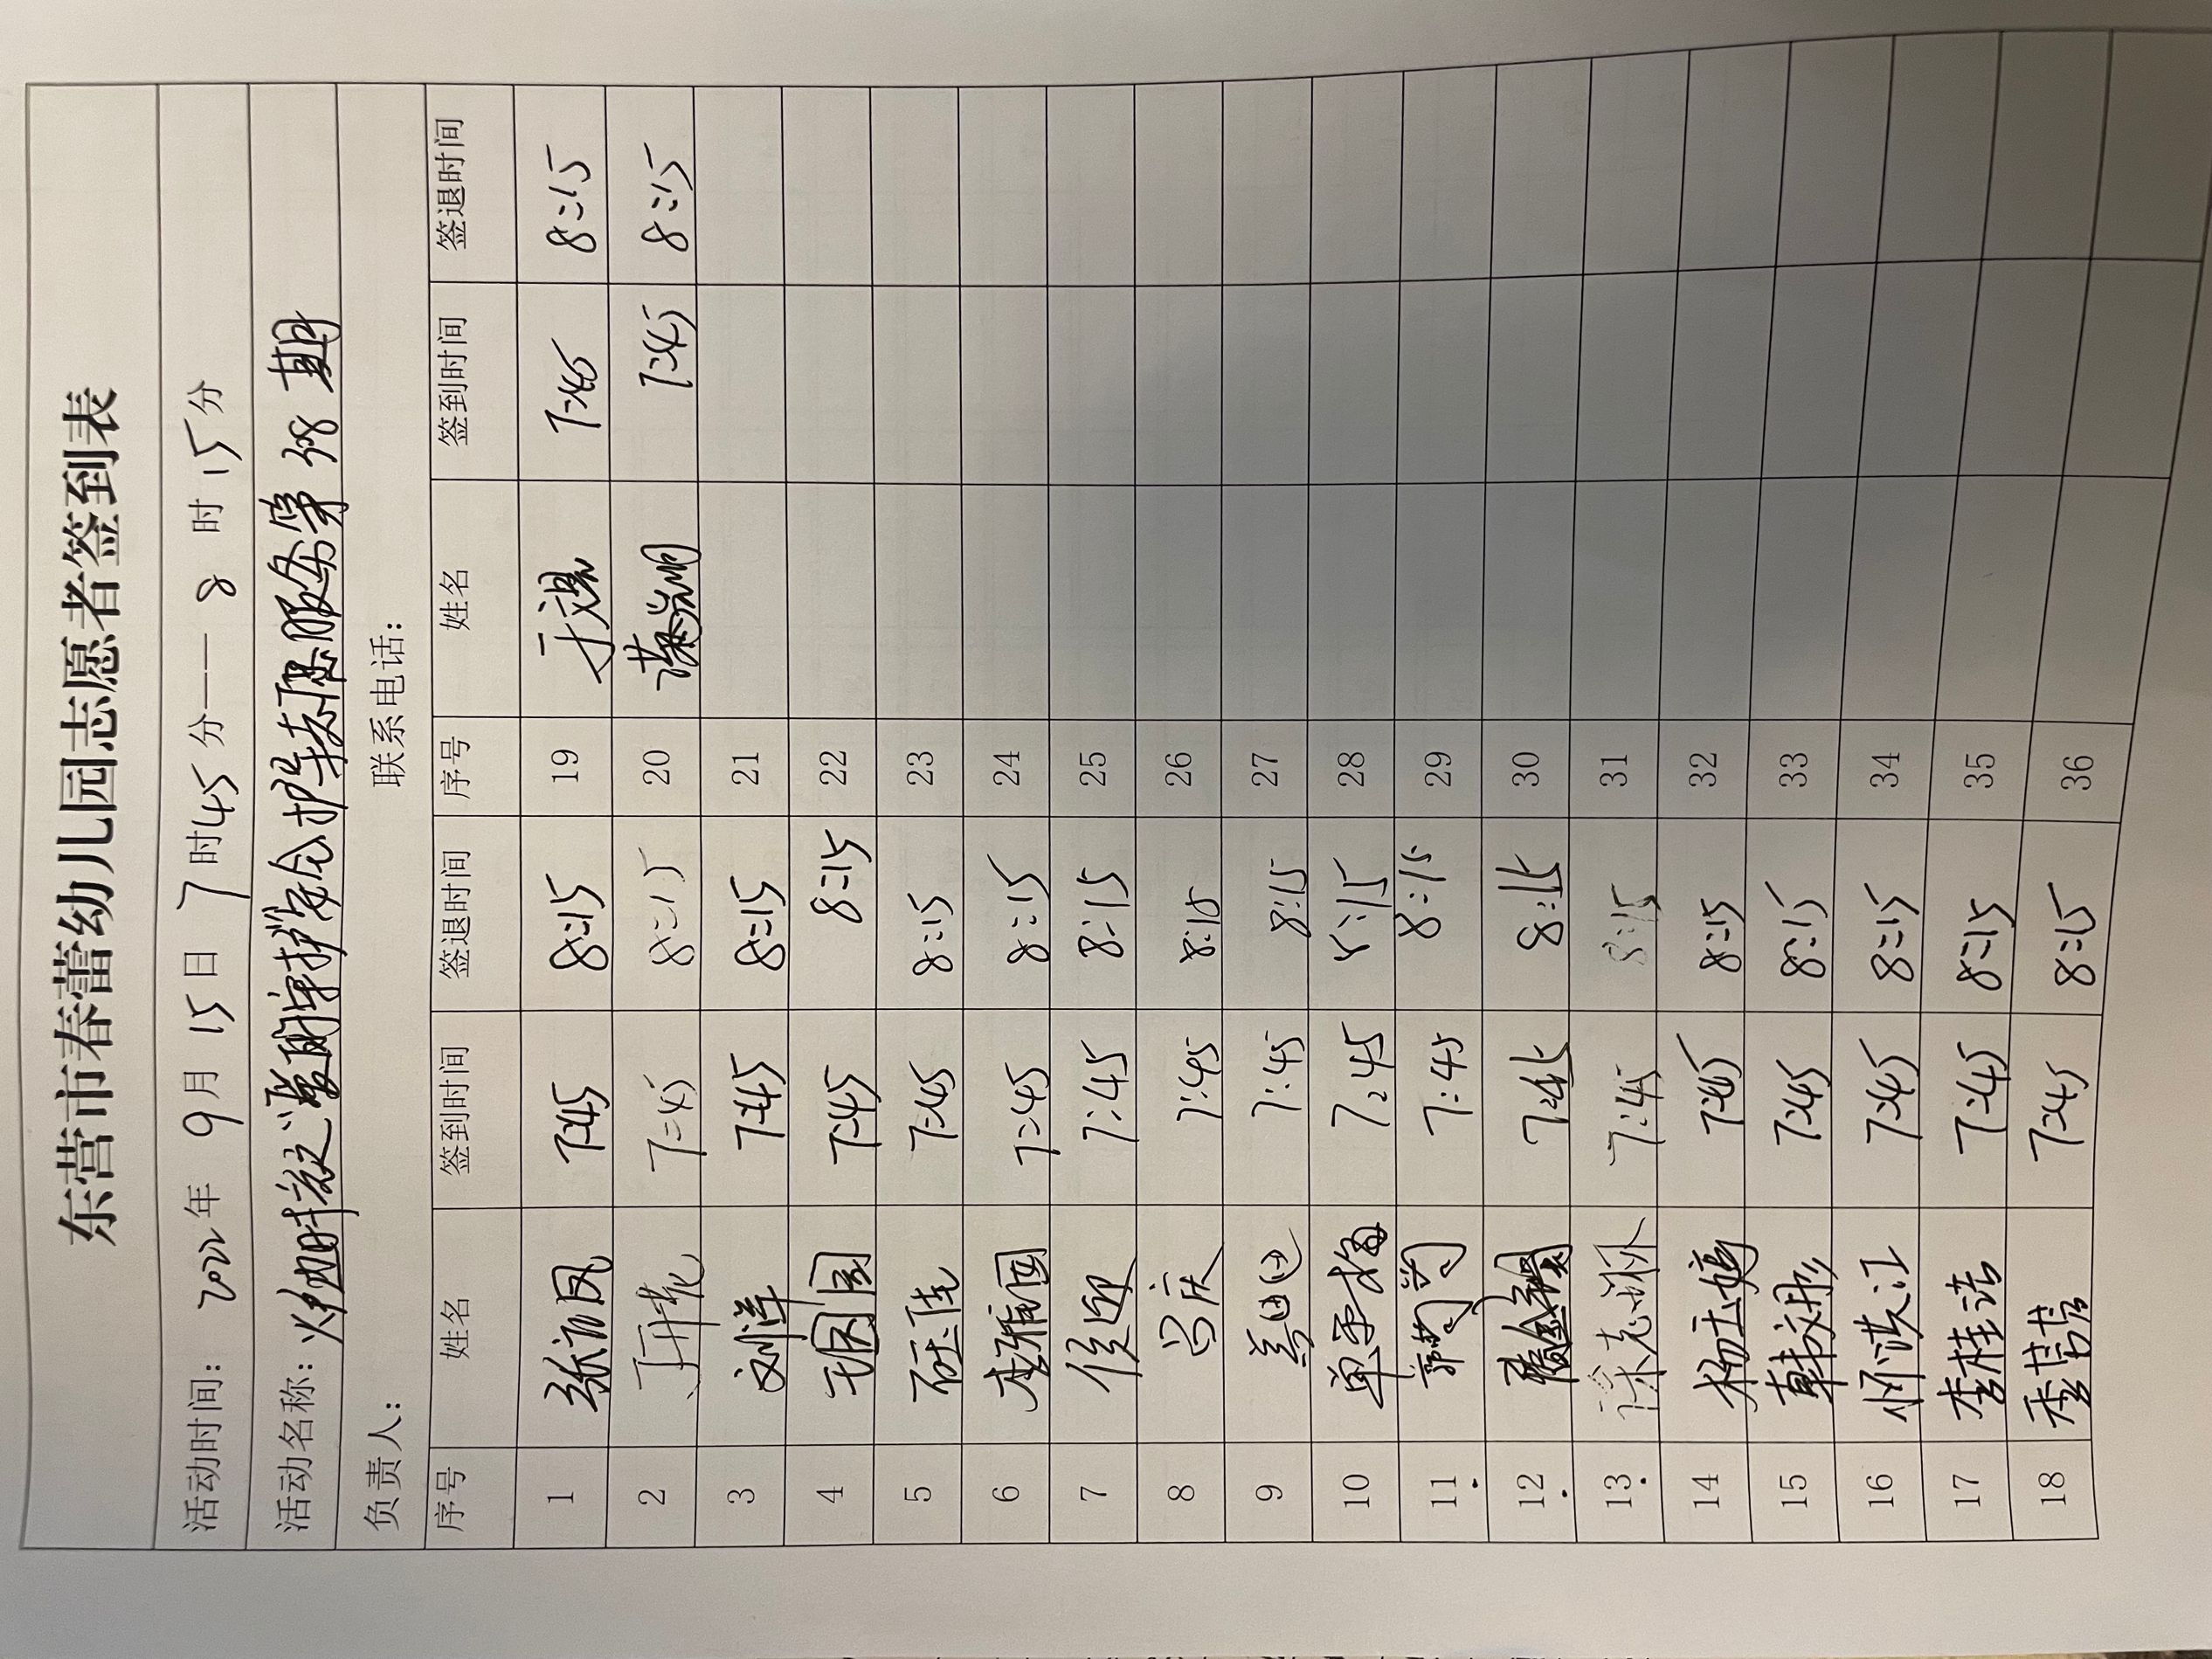 东营市春蕾幼儿园志愿者签到表
活动时间: 2022年 9月 15日 7时45分—— 8时15分
活动名称: 火炬时段之"爱的守护"安全护导志愿服务第 398 期
负责人: 联系电话:
序号 姓名 签到时间 签退时间 序号 姓名 签到时间 签退时间
1 7:45 8:15 19 7:45 8:15
2 7:45 8:15 20 7:45 8:15
3 刘洋 7:45 8:15 21
4 王园园 7:45 8:15 22
5 石佳 7:45 8:15 23
6 李雅园 7:45 8:15 24
7 侯迎 7:45 8:15 25
8 吕庆 7:45 8:15 26
9 7:45 8:15 27
10 单冬梅 7:45 8:15 28
11 郭芳芳 7:45 8:15 29
12 7:45 8:15 30
13 徐志琳 7:45 8:15 31
14 杨立娟 7:45 8:15 32
15 韩文彤 7:45 8:15 33
16 7:45 8:15 34
17 李桂洁 7:45 8:15 35
18 季蓓蓓 7:45 8:15 36